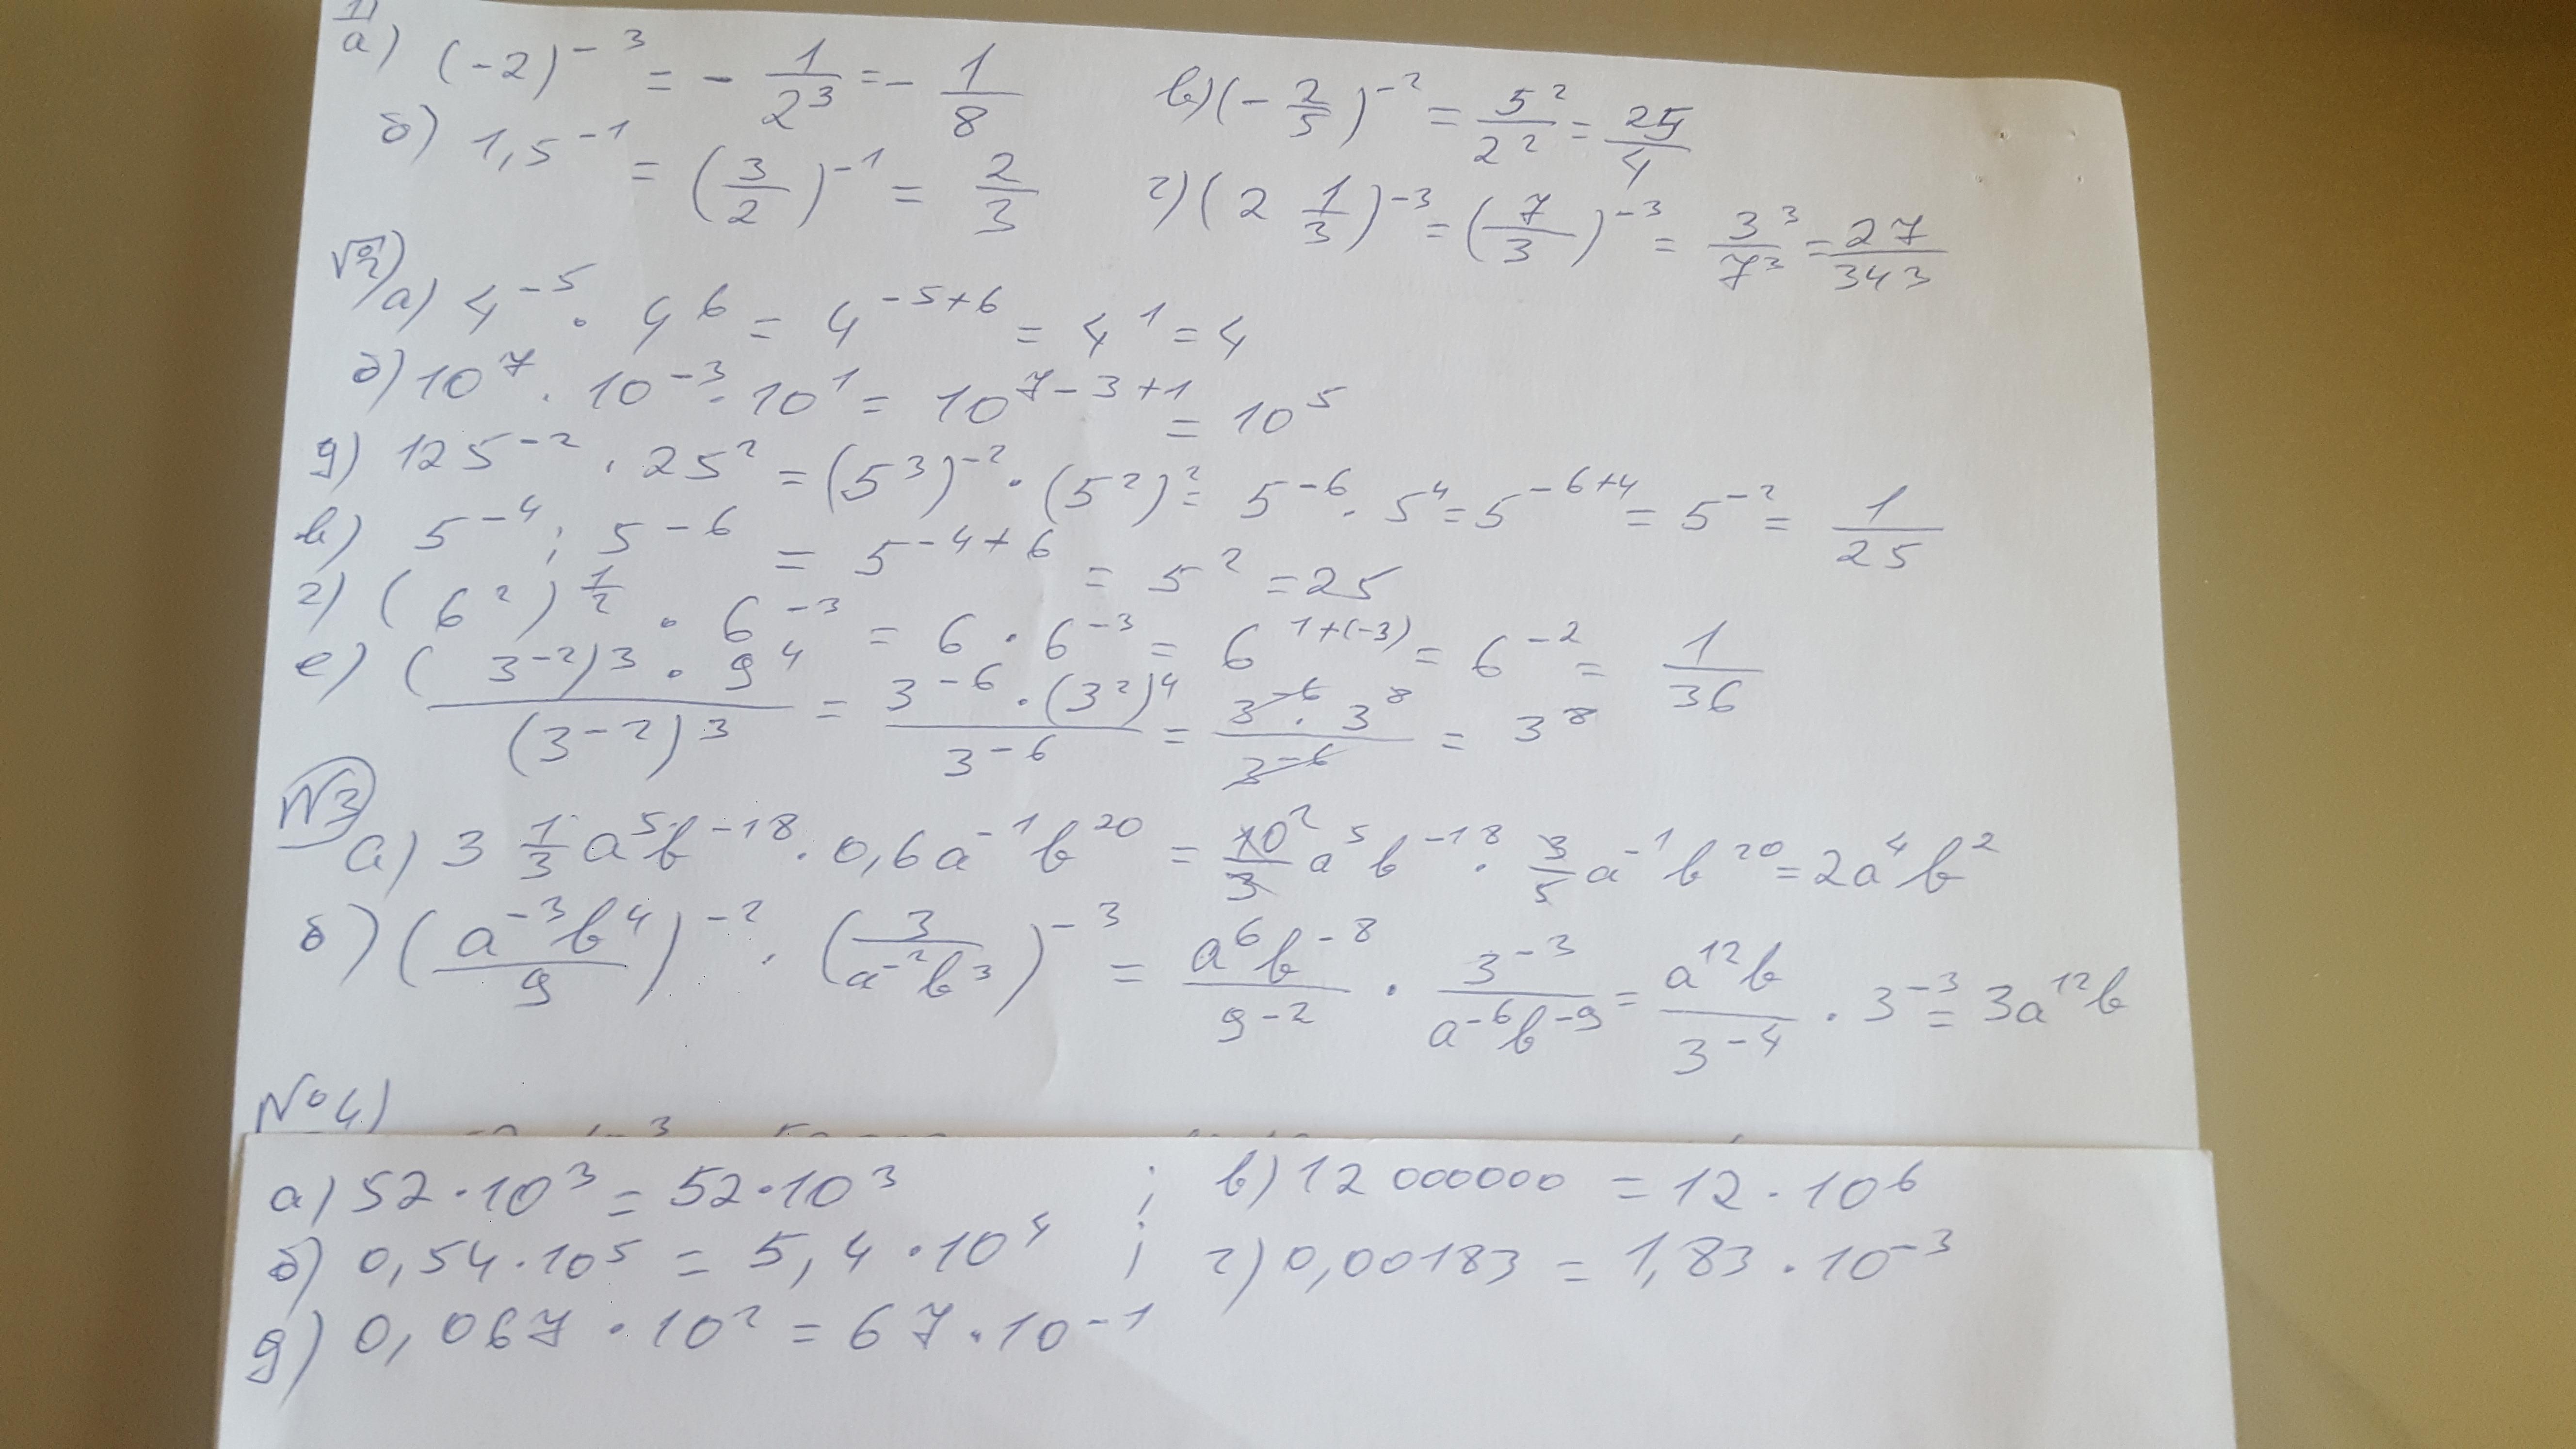 1)
а) (-2)^-3 = - 1/2^3 = - 1/8
б) 1,5^-1 = (3/2)^-1 = 2/3
в) (- 2/5)^-2 = 5^2/2^2 = 25/4
г) (2 1/3)^-3 = (7/3)^-3 = 3^3/7^3 = 27/343
№2)
а) 4^-5 · 4^6 = 4^(-5+6) = 4^1 = 4
б) 10^7 · 10^-3 · 10^1 = 10^(7-3+1) = 10^5
д) 125^-2 · 25^2 = (5^3)^-2 · (5^2)^2 = 5^-6 · 5^4 = 5^(-6+4) = 5^-2 = 1/25
в) 5^-4 : 5^-6 = 5^(-4+6) = 5^2 = 25
г) (6^2)^(1/2) · 6^-3 = 6 · 6^-3 = 6^(1+(-3)) = 6^-2 = 1/36
е) ((3^-2)^3 · 9^4)/(3^-2)^3 = (3^-6 · (3^2)^4)/3^-6 = (3^-6 · 3^8)/3^-6 = 3^8
№3
а) 3 1/3 a^5b^-18 · 0,6a^-1b^20 = 10^2/3 a^5b^-18 · 3/5 a^-1b^20 = 2a^4b^2
б) (a^-3b^4/9)^-2 · (3/a^-2b^3)^-3 = a^6b^-8/9^-2 · 3^-3/a^-6b^-9 = a^12b/3^-4 · 3^-3 = 3a^12b
№4)
а) 52 · 10^3 = 52 · 10^3 ; в) 12 000000 = 12 · 10^6
б) 0,54 · 10^5 = 5,4 · 10^4 ; г) 0,00183 = 1,83 · 10^-3
д) 0,067 · 10^2 = 67 · 10^-1